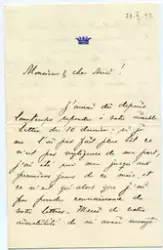 Monsieur & cher Ami !
j'aurai dû depuis
longtemps répondre à votre aimable
lettre du 10 dernier; si je
ne l'ai pas fait plus tôt ce
n'est pas négligence de ma part,
j'ai été pris ma jusqu'aux
premiers jours de ce mois, et
ce n'est qu'alors que j'ai
pu prendre connaissance de
votre lettre. Merci de votre
amabilité de m'avoir envoyé